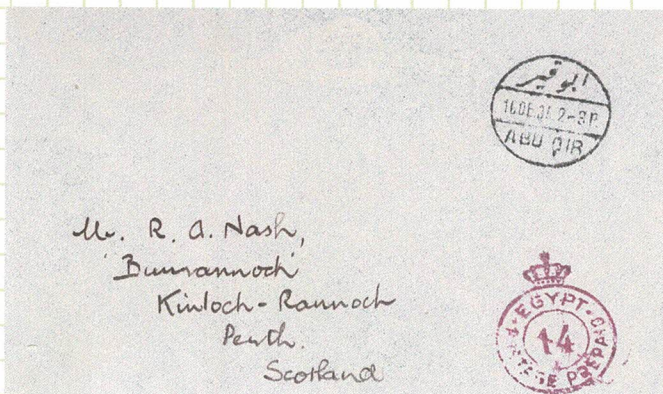 ابو قير
2-3P
ABU QIR
Mr. R. A. Nash,
Kinloch-Rannoch
Perth.
Scotland
EGYPT
14
POSTAGE PREPAID